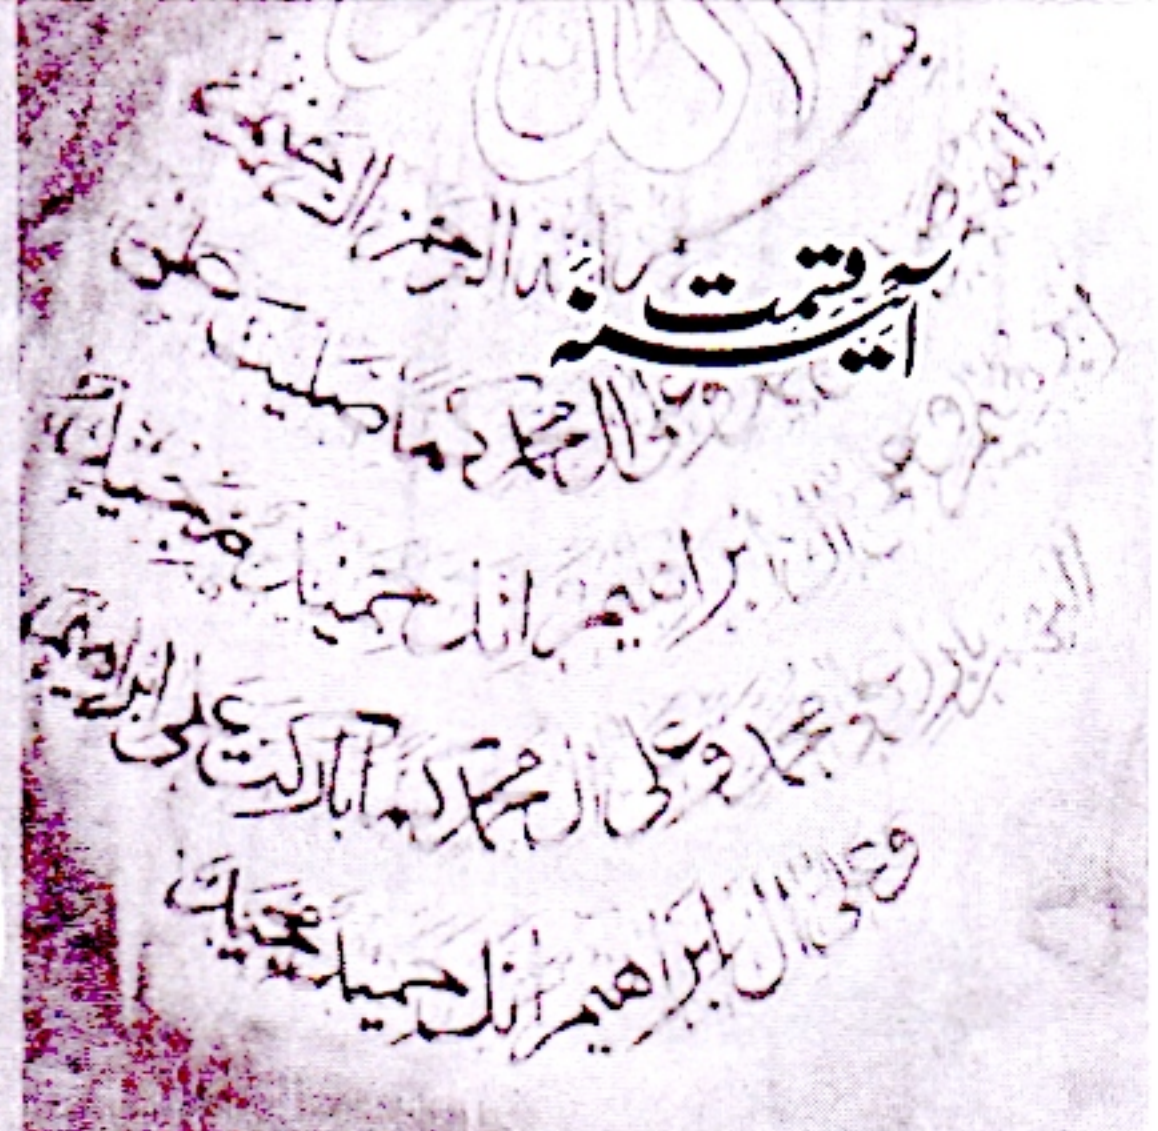 بسم الله الرحمن الرحيم
آئینہ قسمت
اللهم صل على محمد وعلى ال محمد كما صليت على
ابراهيم وعلى ال ابراهيم انك حميد مجيد
اللهم بارك على محمد وعلى ال محمد كما باركت على ابراهيم
وعلى ال ابراهيم انك حميد مجيد